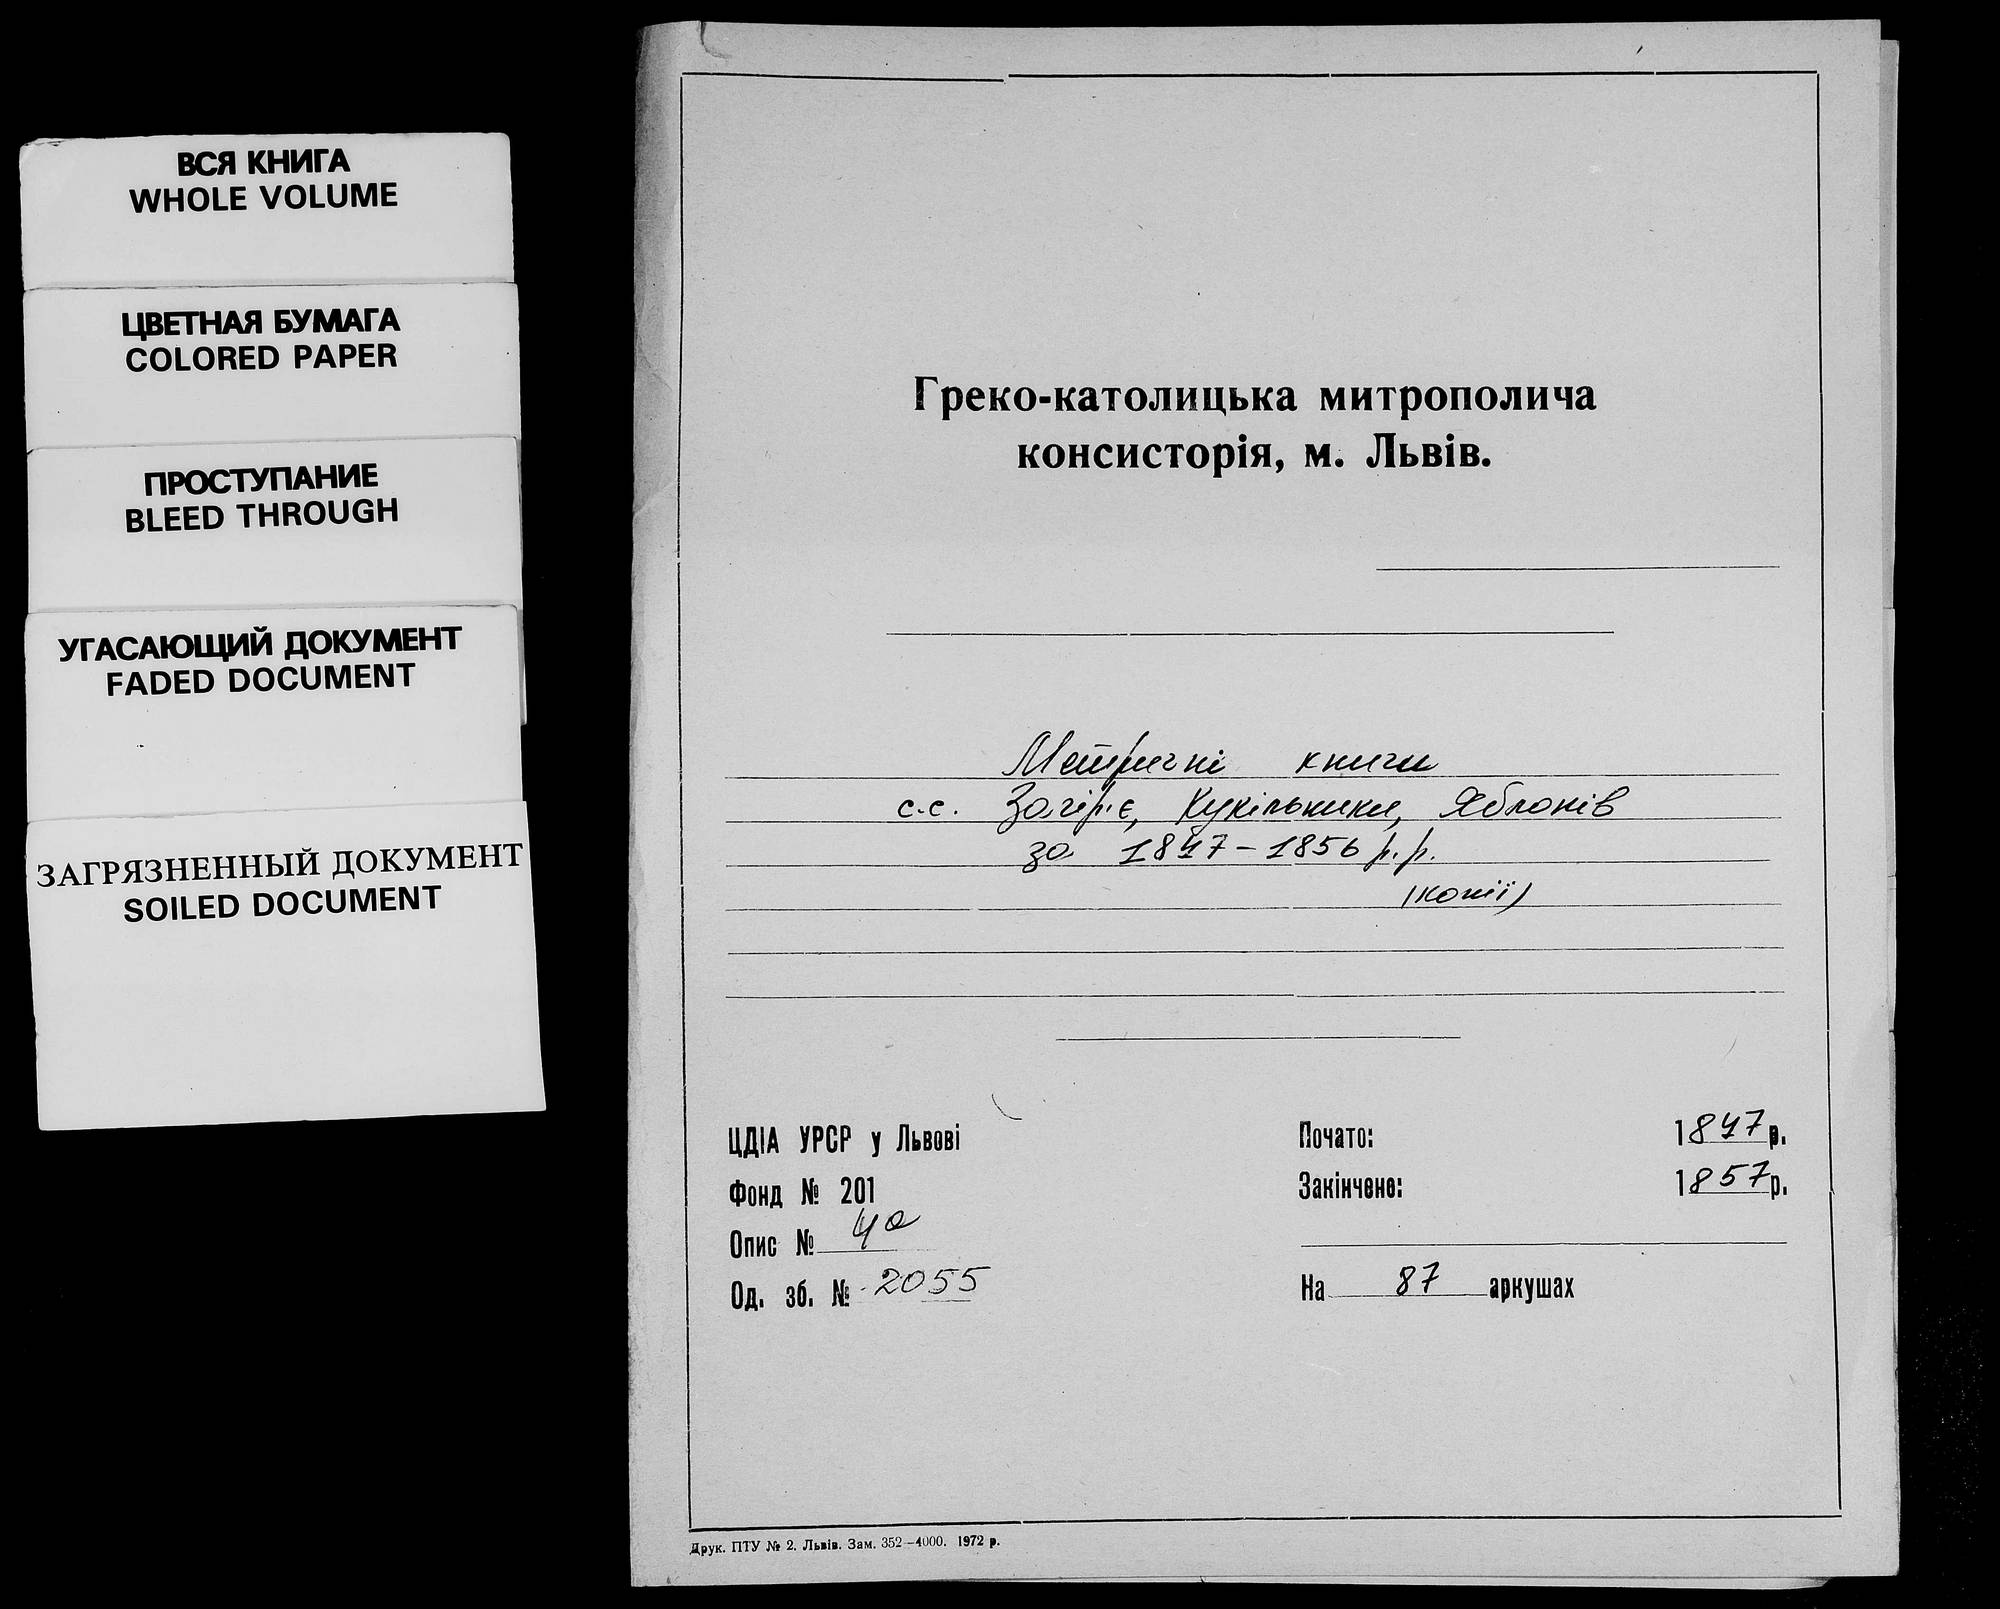 ВСЯ КНИГА
WHOLE VOLUME
ЦВЕТНАЯ БУМАГА
COLORED PAPER
ПРОСТУПАНИЕ
BLEED THROUGH
УГАСАЮЩИЙ ДОКУМЕНТ
FADED DOCUMENT
ЗАГРЯЗНЕННЫЙ ДОКУМЕНТ
SOILED DOCUMENT
Греко-католицька митрополича
консисторія, м. Львів.
Метричні книги
с.с. Загір'є, Кукільники, Яблонів
за 1847-1856 р.р.
(копії)
ЦДІА УРСР у Львові
Фонд № 201
Опис № 4а
Од. зб. № 2055
Почато: 1847 р.
Закінчене: 1857 р.
На 87 аркушах
Друк. ПТУ № 2. Львів. Зам. 352—4000. 1972 р.